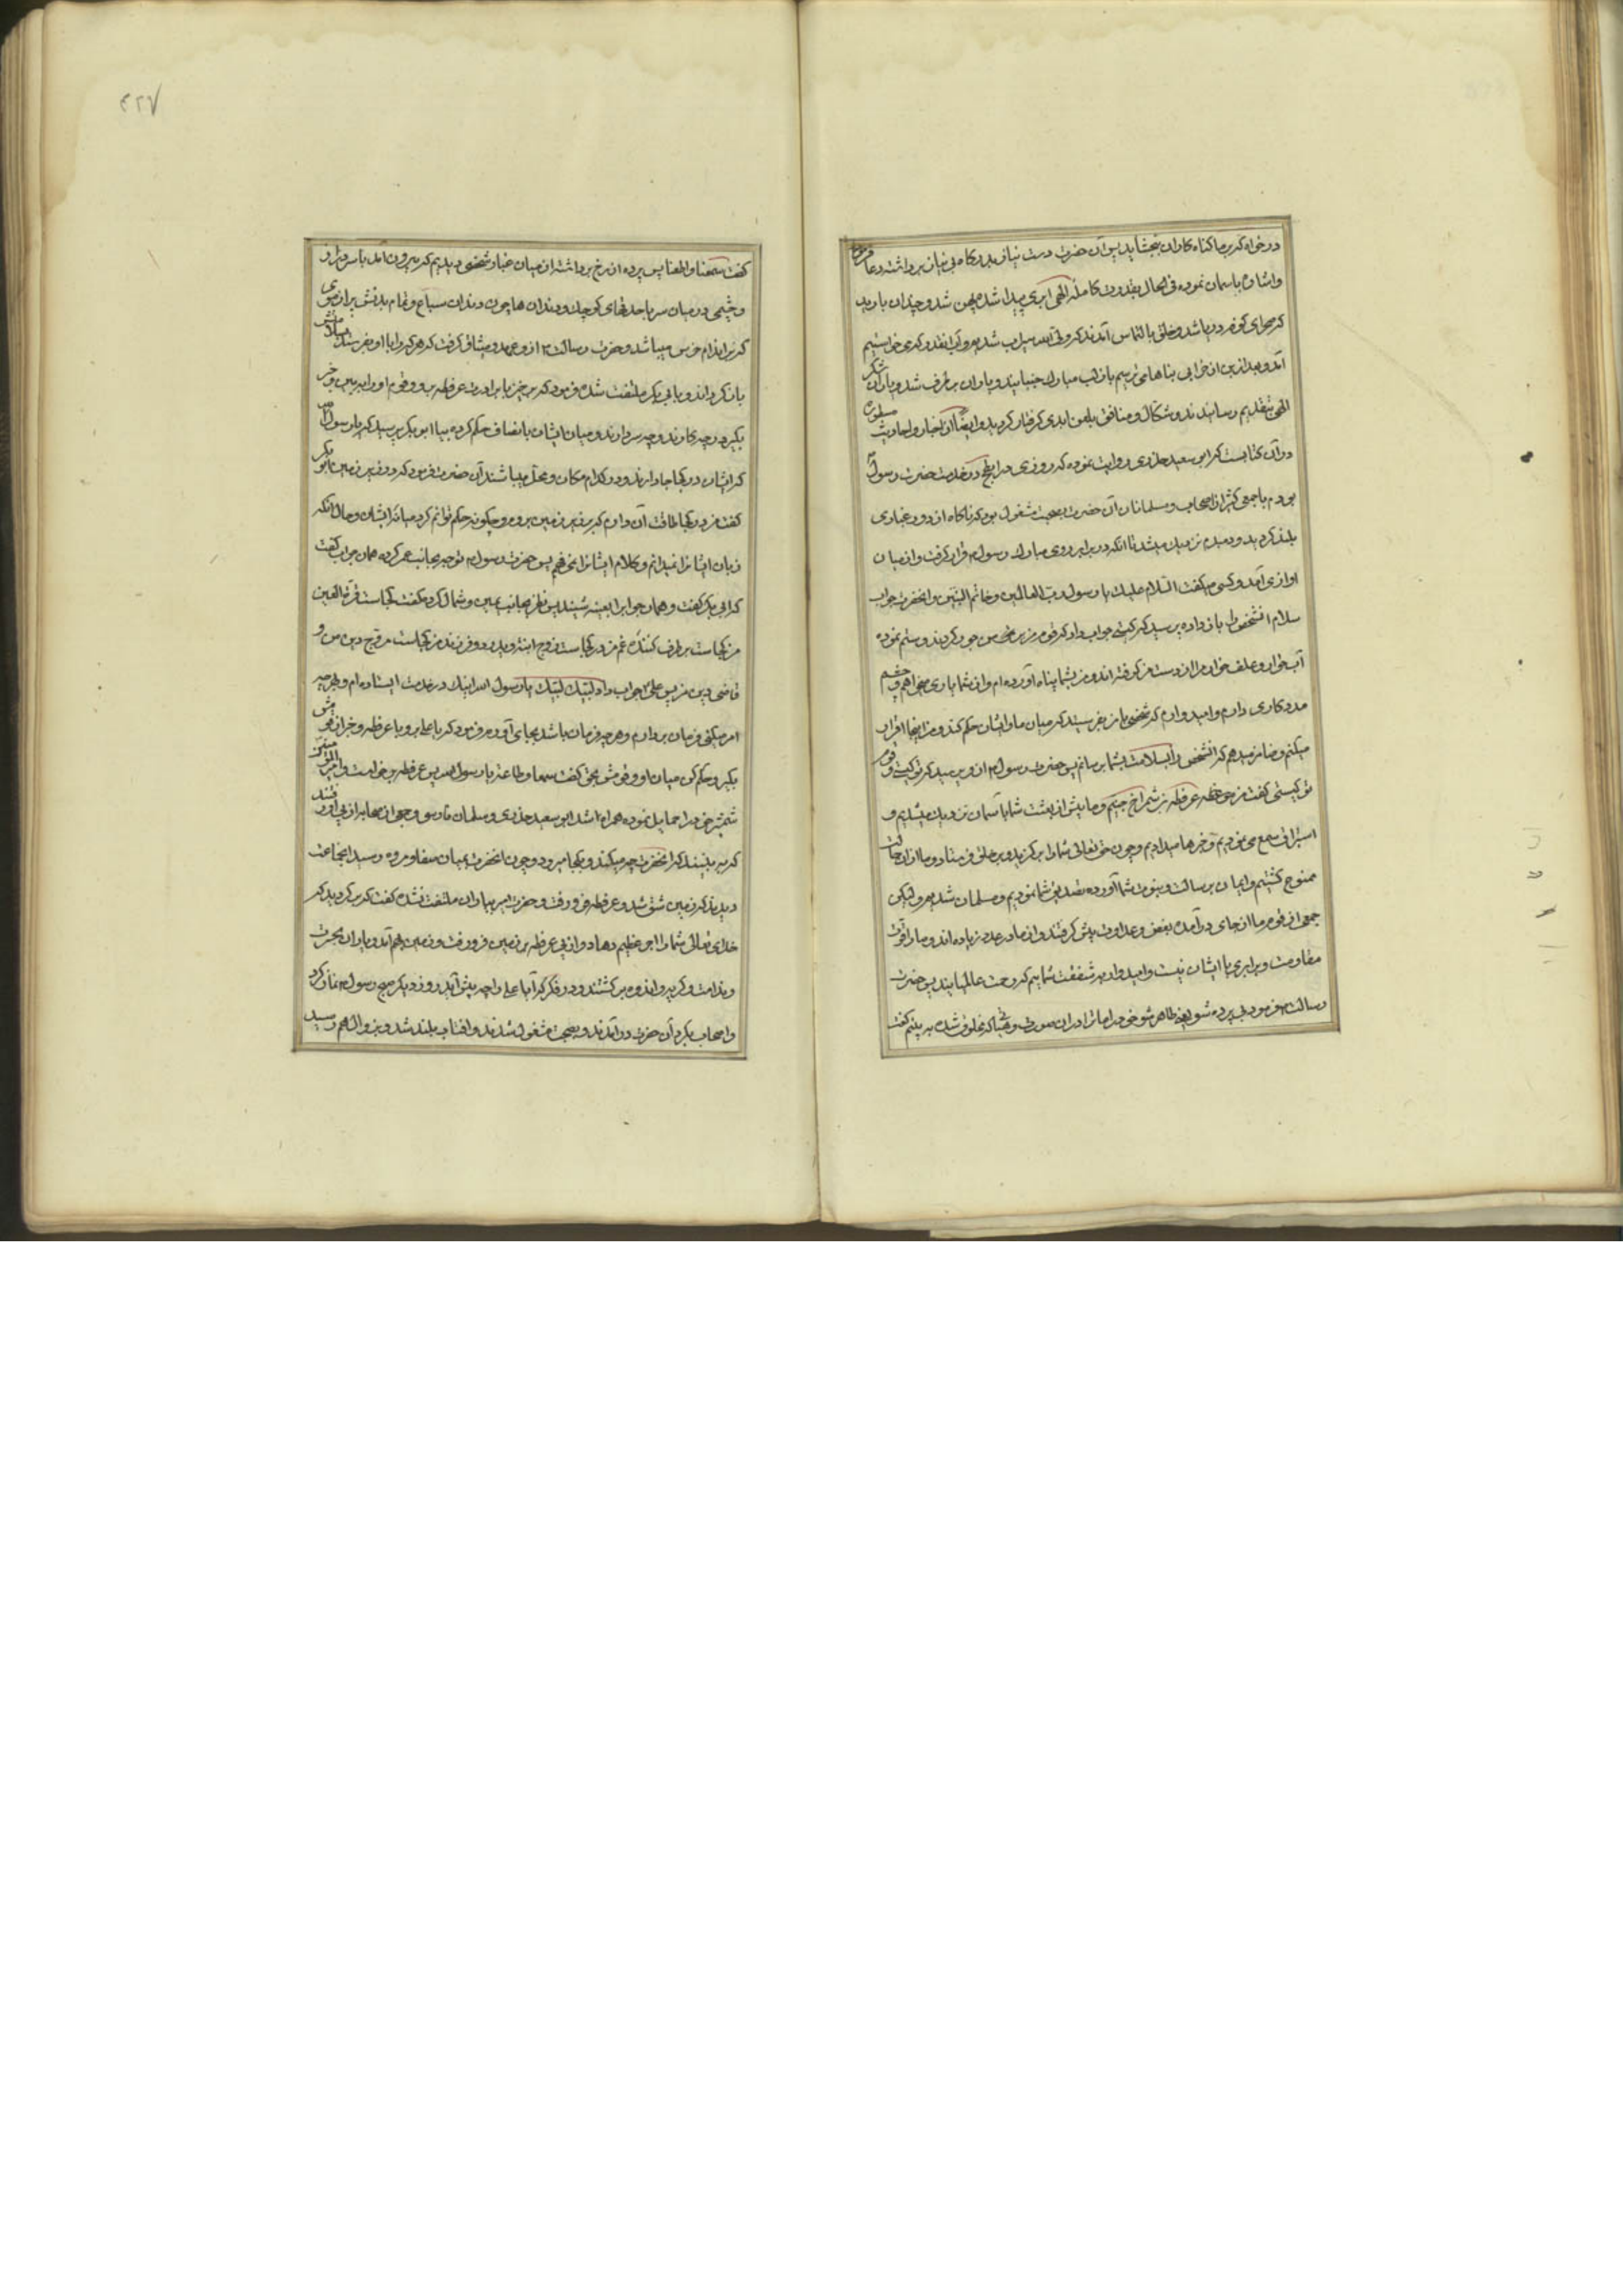 در خواه که بر ما گناه کاران ببخشاید پس آن حضرت دست نیاز بدرگاه بی نیاز برداشته دعا فرمود
واشاره باسمان نموده فی الحال بقدرت کامله الهی ابری پیدا شده پهن شد و چندان بارید
که صحرای کوفه دریا شد و خلق بالتماس آمدند که یا ولی الله سیراب شدیم و آب انقدر که می خواستیم
آمد و بعد ازین از خرابی بناها می ترسیم باز لب مبارک جنبانید و باران بر طرف شد و یاران شکر
الهی بتقدیم رسانیدند و شکاک و منافق بلعن ابدی گرفتار گردید و ایضاً از اخبار و احادیث مسطوره
در آن کتابست که ابو سعید خدری روایت نموده که روزی در ابطح در خدمت حضرت رسول
بودم با جمعی کثیر از اصحاب و مسلمانان آن حضرت بصحبت مشغول بود که ناکاه از دور غباری
بلند گردید و دمبدم نزدیک میشد تا انکه در برابر روی مبارک رسول قرار گرفت و از میان
اوازی آمد و کسی میگفت السلام علیک یا رسول رب العالمین و خاتم النبیین و انحضرت جواب
سلام انشخص را باز داده پرسید که کیستی جواب داد که قوم من بر من جور کردند و ستم نموده
آبخوار و علف خوار مرا از دست من گرفته اند و من بشما پناه آورده ام و از شما یاری میخواهم و چشم
مددکاری دارم و امید وارم که شخصی با من بفرستید که میان ما و ایشان حکم کند و من اینجا اقرار
میکنم و ضامن میدهم که انشخص را بسلامت بشما برسانم پس حضرت رسول از و پرسید که تو کیستی و قوم
تو کیستی گفت من عرفطه بن شمراخ جنیم و ما پیش از بعثت شما باسمان نزدیک میشدیم و
استراق سمع می نمودیم و خبرها میدادیم و چون حق تعالی شما را برگزید و بر خلق فرستاد و ما از ان حالت
ممنوع گشتیم و ایمان برسالت و نبوت شما آورده تصدیق شما نمودیم و مسلمان شدیم و لیکن
جمعی از قوم ما از جای در آمده بغض و عداوت پیش گرفتند و از ما در عدد زیاده اند و ما را قوت
مقاومت و برابری با ایشان نیست و امید وار بر شفقت شماییم که رحمت عالمیانید پس حضرت
رسالت فرمود بی پرده شو یعنی ظاهر شو خود را ما ترا در ان صورت و هیئاتی که مخلوق شده به بینم گفت
گفت سمعنا و اطعنا پس پرده از رخ برداشته از میان غبار شخصی دیدیم که بیرون آمد با سر دراز
و چشمی در میان سر با حدقهای کوچک و دندان ها چون دندان سباع و تمام بدنش پر از موی
بازگرداند و بابی بکر ملتفت شده فرمود که برخیز با برادرت عرفطه برو و قوم او را به بین و خبر
بگیر در چه کارند و چه سر دارند و میان ایشان بانصاف حکم کرده بیا ابو بکر پرسید که یا رسول الله
که ایشان در کجا جا دارند و در کدام مکان و محل میباشند آن حضرت فرمود که در زیر زمین ابو بکر
گفت من در کجا طاقت آن دارم که بزیر زمین بروم و چگونه حکم توانم کرد میانه ایشان و حال انکه
زبان ایشانرا نمیدانم و کلام ایشانرا نمی فهمم پس حضرت رسول توجه بجانب عمر کرده همان جواب گفت
که ابی بکر گفت و همان جواب را بعینه شنید پس نظر بجانب یمین و شمال کرد گفت کجاست قرة العین
من کجاست بر طرف کننده غم من در کجاست زوج ابنتم و پدر دو فرزند من کجاست مروج دین من و
قاضی دین من پس علی جواب داد لبیک لبیک یا رسول الله اینک در خدمت ایستاده ام و بهر چه
امر میکنی فرمان بردارم و هر چه فرمان باشد بجای آورم فرمود که یا علی برو با عرفطه و خبر از قومش
بگیر و حکم کن میان او و قومش بحق گفت سمعا و طاعة یا رسول الله پس عرفطه برخاست و امیر المؤمنین
شمشیر خود را حمایل نموده همراه او شد ابو سعید خدری و سلمان فارسی و جمعی از صحابه از پی او رفتند
که به بینند که انحضرت چه میکند و بکجا میرود و چون انحضرت بمیان صفا و مروه رسید انجماعت
دیدند که زمین شق شد و عرفطه فرو رفت و حضرت امیر بیاران ملتفت شده گفت که برگردید که
خدای تعالی شما را اجر عظیم دهاد و از پی عرفطه بزمین فرو رفت و زمین بهم آمد و یاران بحسرت
و ندامت و گریه و اندوه برگشتند و در فکر که آیا علی را چه پیش آید روز دیگر صبح رسول نماز کرد
واصحاب بگرد آن حضرت در آمدند و بصحبت مشغول شدند و افتاب بلند شد و بزوال هم رسید